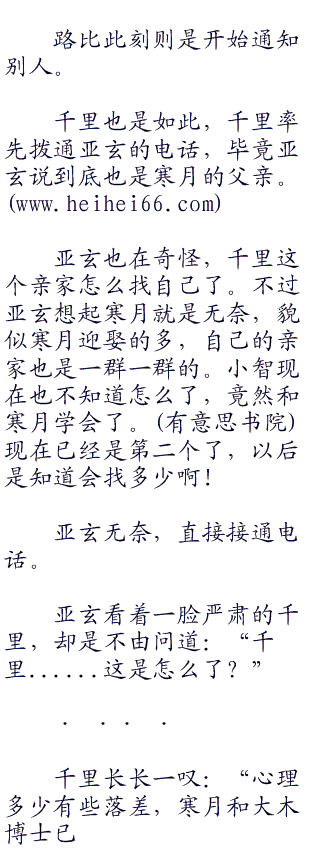 路比此刻则是开始通知
别人。
千里也是如此，千里率
先拨通亚玄的电话，毕竟亚
玄说到底也是寒月的父亲。
(www.heihei66.com)
亚玄也在奇怪，千里这
个亲家怎么找自己了。不过
亚玄想起寒月就是无奈，貌
似寒月迎娶的多，自己的亲
家也是一群一群的。小智现
在也不知道怎么了，竟然和
寒月学会了。(有意思书院)
现在已经是第二个了，以后
是知道会找多少啊!
亚玄无奈，直接接通电
话。
亚玄看着一脸严肃的千
里，却是不由问道：“千
里......这是怎么了?”
. . . .
千里长长一叹：“心理
多少有些落差，寒月和大木
博士已